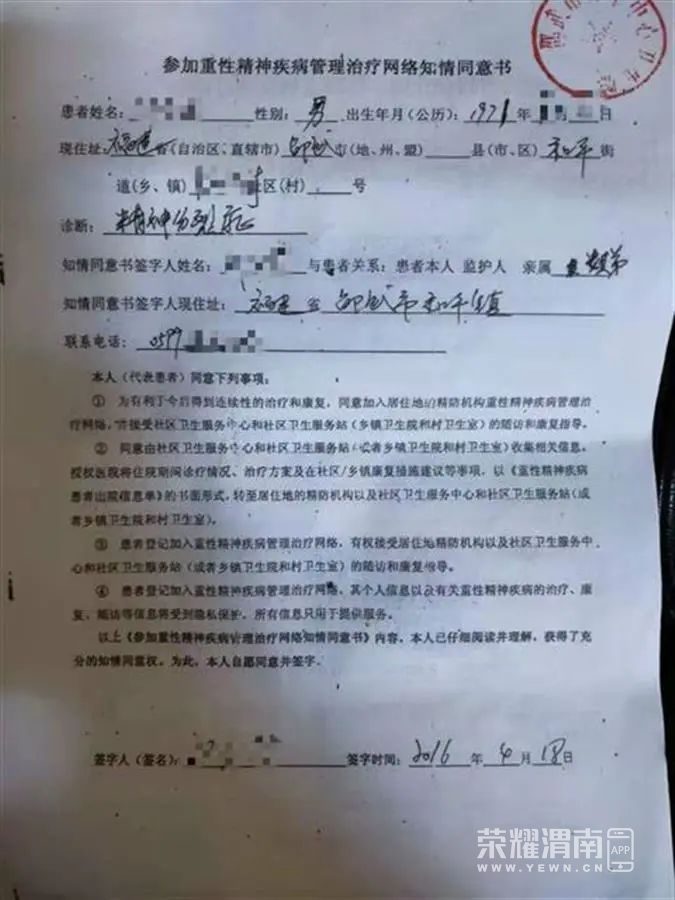 参加重性精神疾病管理治疗网络知情同意书
患者姓名： 性别：男 出生年月（公历）：1971年 日
现住址：福建省（自治区、直辖市）邵武市（地、州、盟） 县（市、区）和平街
道（乡、镇） 社区（村） 号
诊断：精神分裂症
知情同意书签字人姓名： 与患者关系：患者本人 监护人 亲属
知情同意书签字人现住址：福建省邵武市和平镇
联系电话：0599
本人（代表患者）同意下列事项：
① 为有利于今后得到连续性的治疗和康复，同意加入居住地的精防机构重性精神疾病管理治
疗网络，并接受社区卫生服务中心和社区卫生服务站（乡镇卫生院和村卫生室）的随访和康复指导。
② 同意由社区卫生服务中心和社区卫生服务站（或者乡镇卫生院和村卫生室）收集相关信息。
授权医院将住院期间诊疗情况、治疗方案及在社区/乡镇康复措施建议等事项，以《重性精神疾病
患者出院信息单》的书面形式，转至居住地的精防机构以及社区卫生服务中心和社区卫生服务站（或
者乡镇卫生院和村卫生室）。
③ 患者登记加入重性精神疾病管理治疗网络，有权接受居住地精防机构以及社区卫生服务中
心和社区卫生服务站（或者乡镇卫生院和村卫生室）的随访和康复指导。
④ 患者登记加入重性精神疾病管理治疗网络，其个人信息以及有关重性精神疾病的治疗、康
复、随访等信息将受到隐私保护，所有信息只用于提供服务。
以上《参加重性精神疾病管理治疗网络知情同意书》内容，本人已仔细阅读并理解，获得了充
分的知情同意权。为此，本人自愿同意并签字。
签字人（签名）： 签字时间：2016年4月18日
荣耀渭南 APP
WWW.YEWN.CN